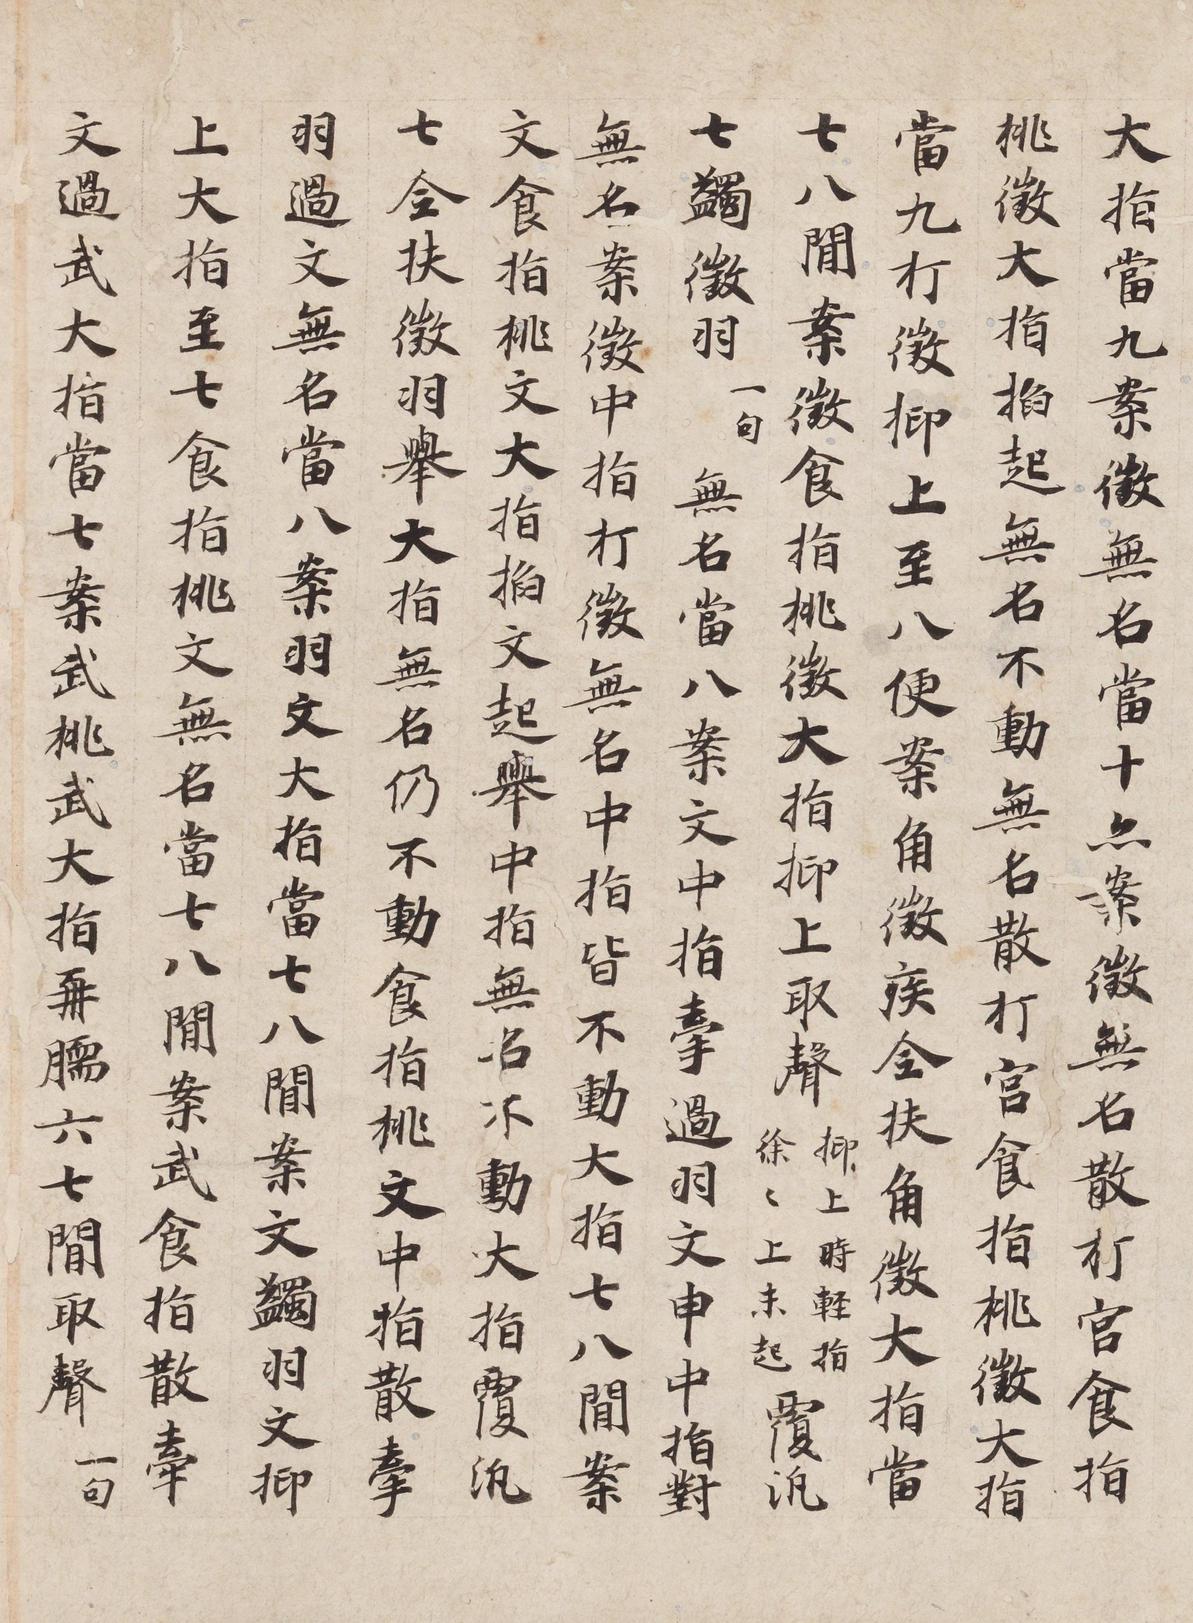 大指當九案徵無名當十亦案徵無名散打宮食指
桃徵大指掐起無名不動無名散打宮食指桃徵大指
當九打徵抑上至八便案角徵疾全扶角徵大指當
七八閒案徵食指桃徵大指抑上取聲抑上時輕指徐〻上未起覆汎
七蠲徵羽一句無名當八案文中指牽過羽文申中指對
無名案徵中指打徵無名中指皆不動大指七八閒案
文食指桃文大指掐文起舉中指無名不動大指覆汎
七全扶徵羽舉大指無名仍不動食指桃文中指散牽
羽過文無名當八案羽文大指當七八閒案文蠲羽文抑
上大指至七食指桃文無名當七八閒案武食指散牽
文過武大指當七案武桃武大指再臑六七閒取聲一句